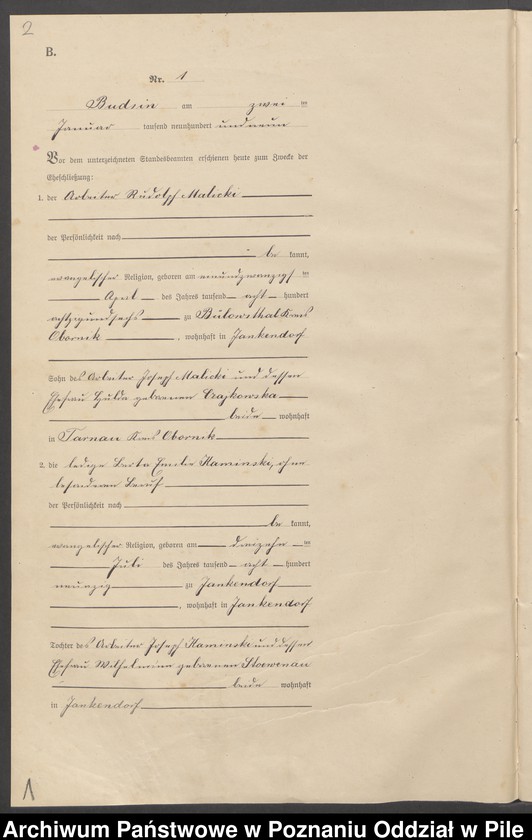 2
B.
Nr. 1
Budsin am zwei ten
Januar tausend neunhundert und neun
Vor dem unterzeichneten Standesbeamten erschienen heute zum Zwecke der
Eheschließung:
1. der Arbeiter Rudolph Malicki
der Persönlichkeit nach
be kannt,
evangelischer Religion, geboren am einundzwanzigs ten
April des Jahres tausend acht hundert
achtzigundsechs zu Bülowsthal Kreis
Obornik, wohnhaft in Jankendorf
Sohn des Arbeiter Joseph Malicki und dessen
Ehefrau Hulda geborenen Czajkowska
beide wohnhaft
in Tarnau Kreis Obornik
2. die ledige Berta Emilie Kaminski, ohne
besonderen Beruf
der Persönlichkeit nach
be kannt,
evangelischer Religion, geboren am dreizehn ten
Juli des Jahres tausend acht hundert
neunzig zu Jankendorf
, wohnhaft in Jankendorf
Tochter des Arbeiter Joseph Kaminski und dessen
Ehefrau Wilhelmine geborenen Stoewenau
beide wohnhaft
in Jankendorf
1
Archiwum Państwowe w Poznaniu Oddział w Pile